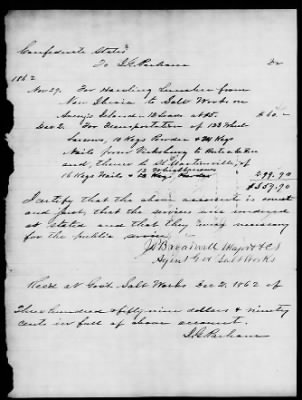 Confederate States
To J G Parham Dr
1862
Nov 29. For Hauling Lumber from
New Iberia to Salt Works on
Avery's Island 12 Loads at $5. $60.—
Dec 2. For Transportation of 133 Wheel
barrows, 10 Kegs Powder & 24 Kegs
Nails from Vicksburg to
and, thence to St Martinville, of
16 Kegs Nails & 12 Wheelbarrows
299.90
$359.90
I certify that the above account is correct
and just, that the services were rendered
as stated and that they were necessary
for the public service
Major & CS
Agent Gov Salt Works
Recd at Govt Salt Works Dec 2, 1862 of
Three hundred & fifty nine dollars & ninety
cents in full of above account.
J G Parham